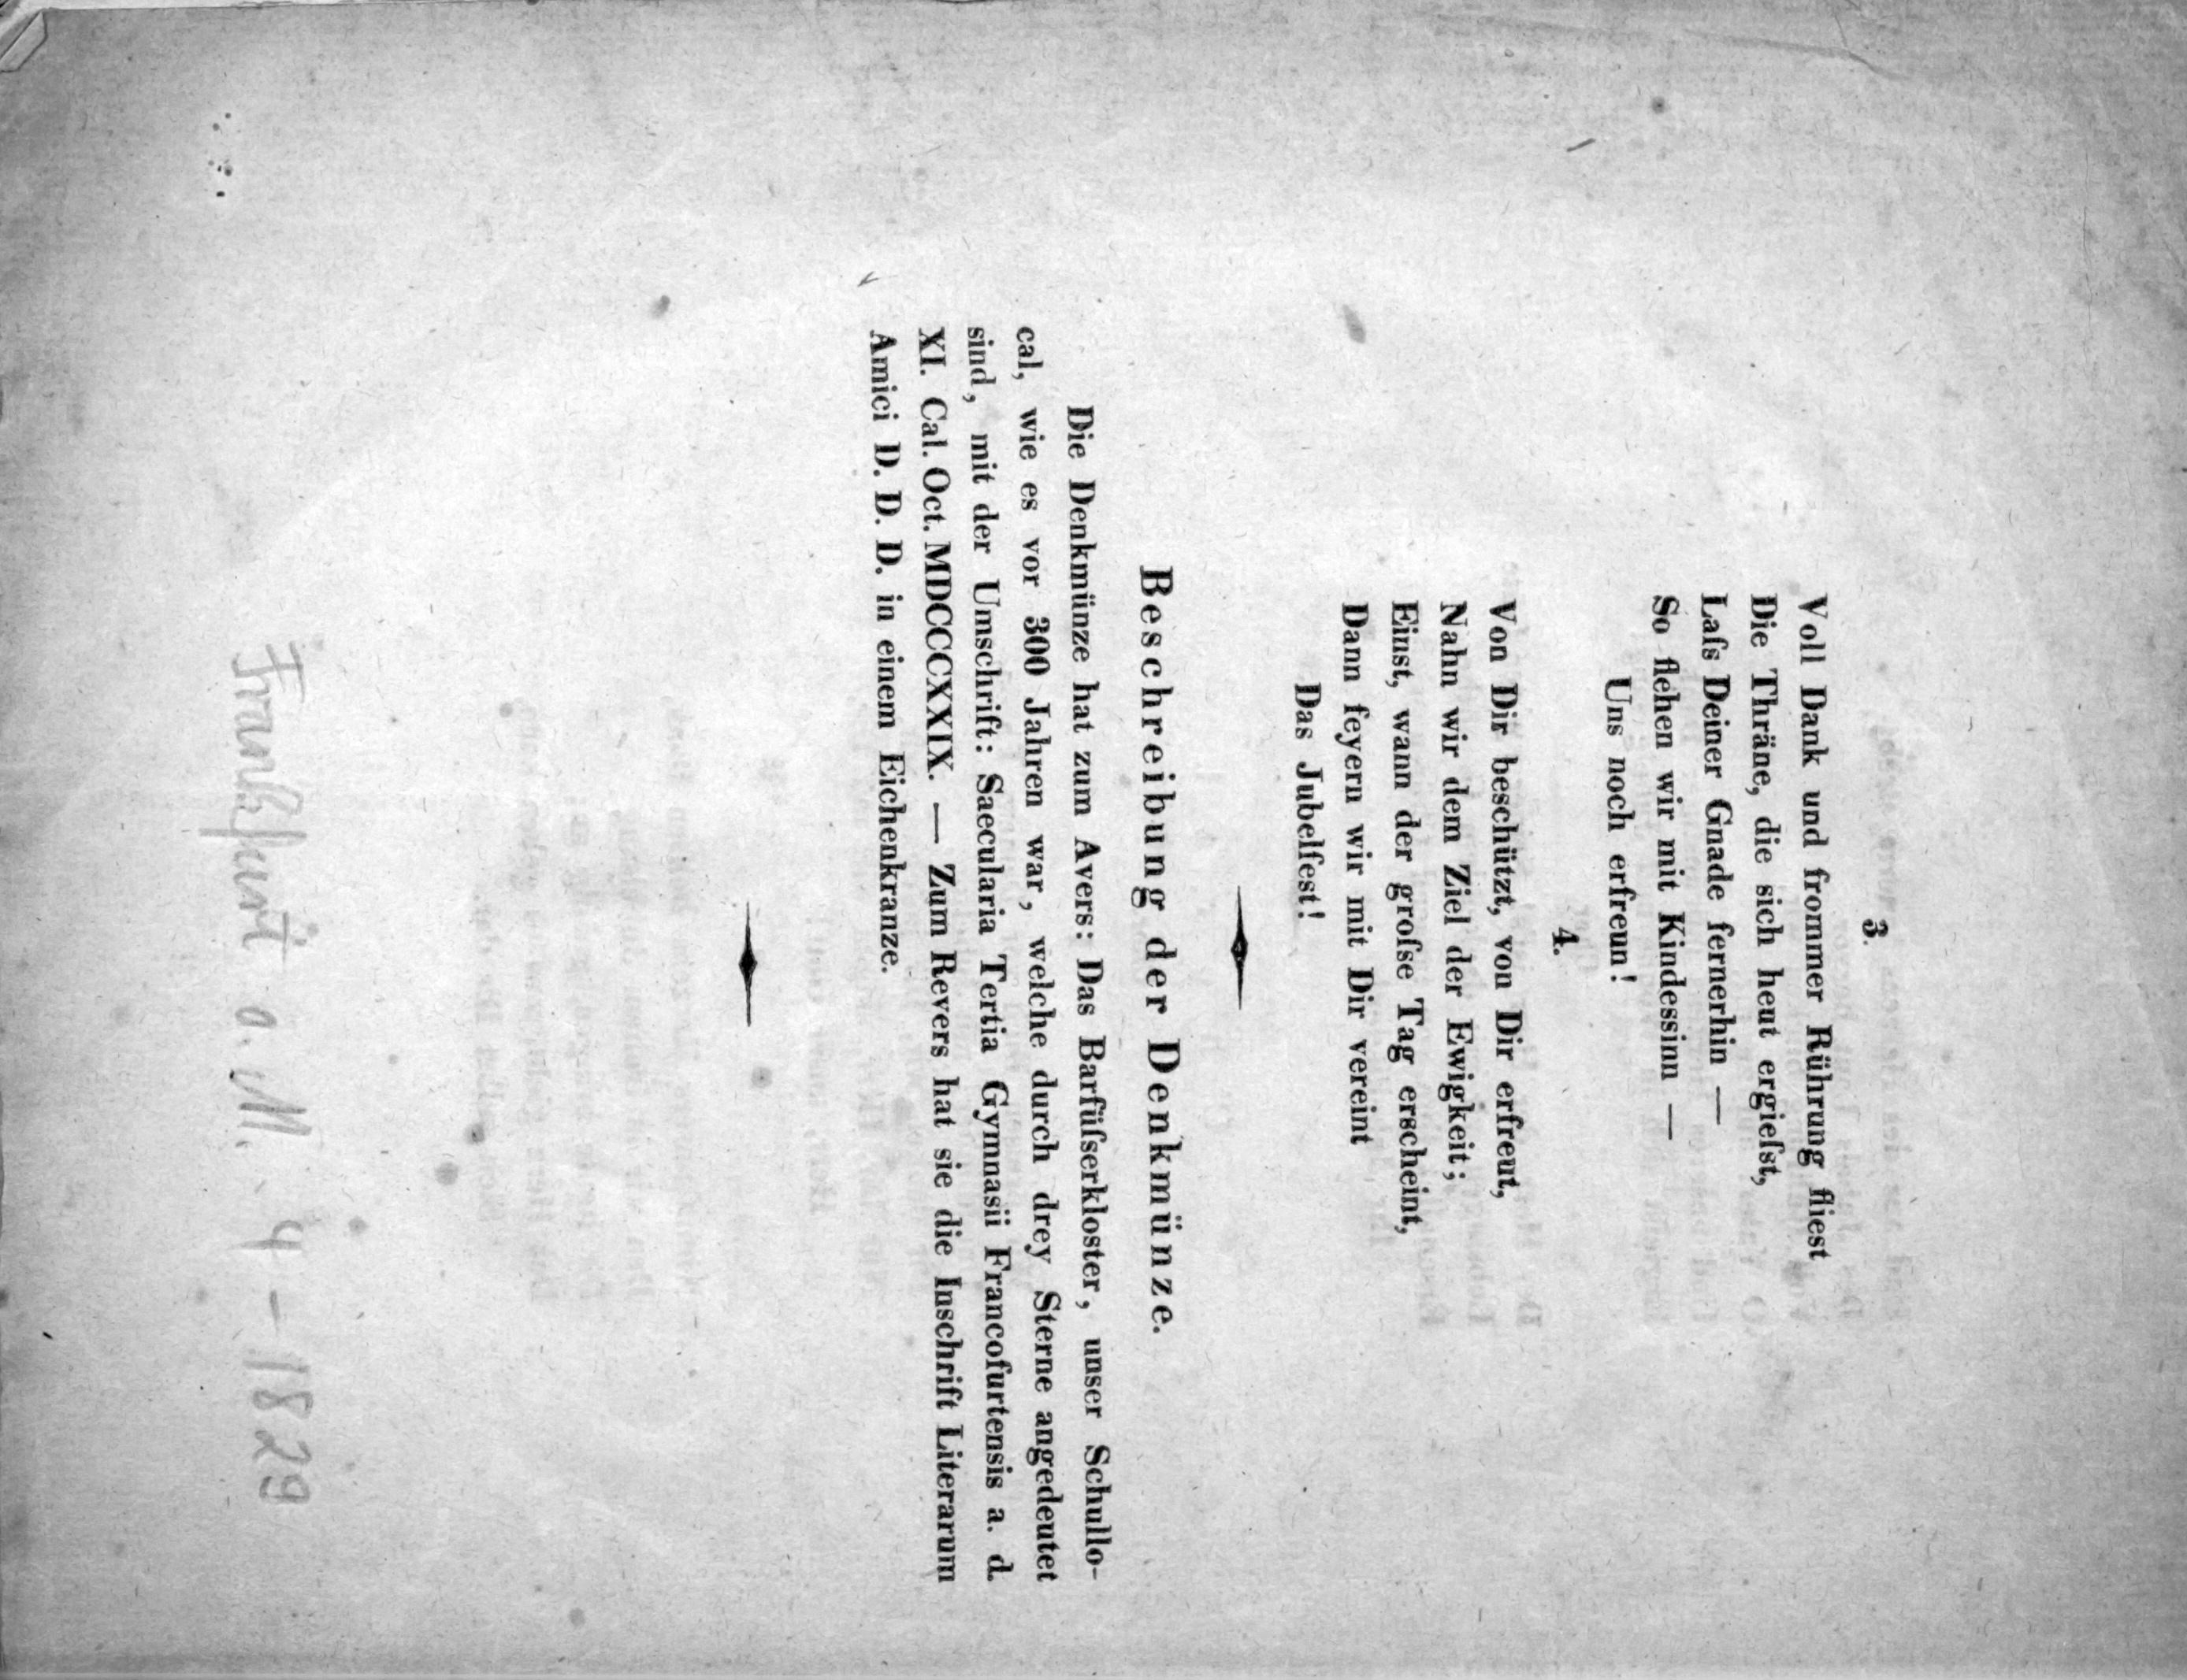 3.
Voll Dank und frommer Rührung fliest
Die Thräne, die sich heut ergieſst,
Laſs Deiner Gnade fernerhin —
So flehen wir mit Kindessinn —
Uns noch erfreun!
4.
Von Dir beschützt, von Dir erfreut,
Nahn wir dem Ziel der Ewigkeit;
Einst, wann der groſse Tag erscheint,
Dann feyern wir mit Dir vereint
Das Jubelfest!
Beschreibung der Denkmünze.
Die Denkmünze hat zum Avers: Das Barfüſserkloster, unser Schullo-
cal, wie es vor 300 Jahren war, welche durch drey Sterne angedeutet
sind, mit der Umschrift: Saecularia Tertia Gymnasii Francofurtensis a. d.
XI. Cal. Oct. MDCCCXXIX. — Zum Revers hat sie die Inschrift Literarum
Amici D. D. D. in einem Eichenkranze.
Frankfurt a. M. 4 – 1829